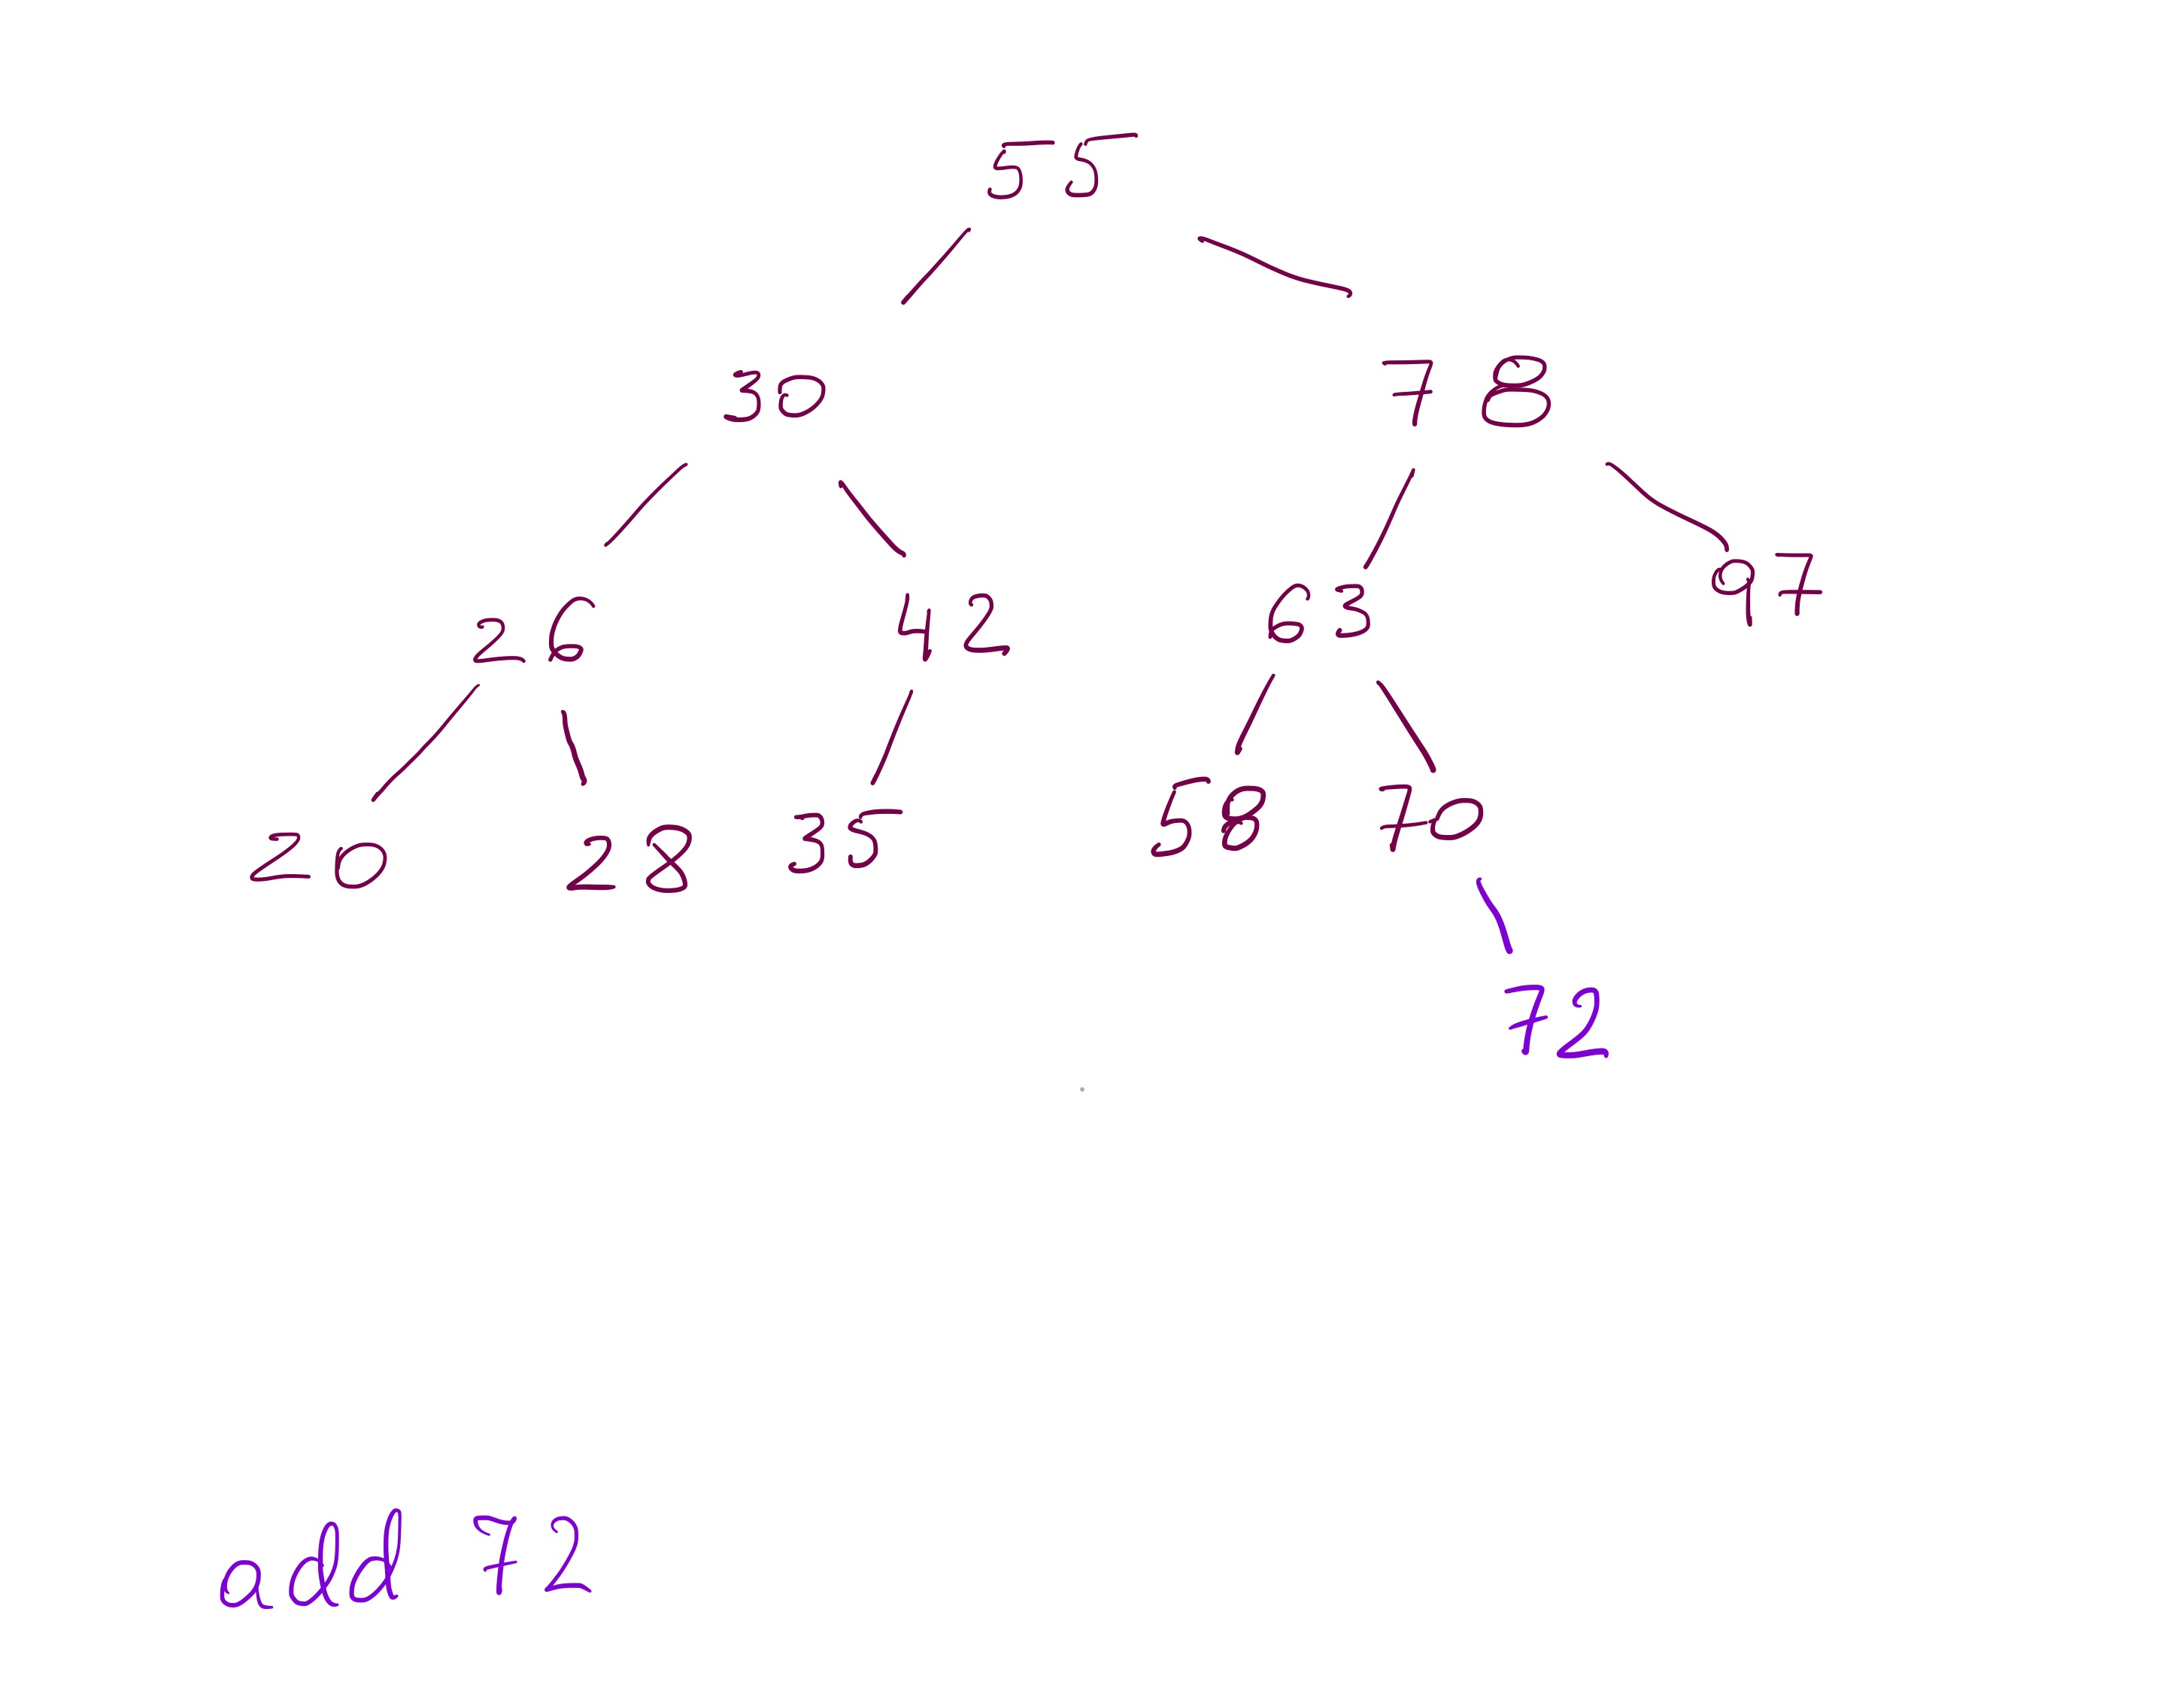 55
30 78
26 42 63 97
20 28 35 58 70
72
add 72